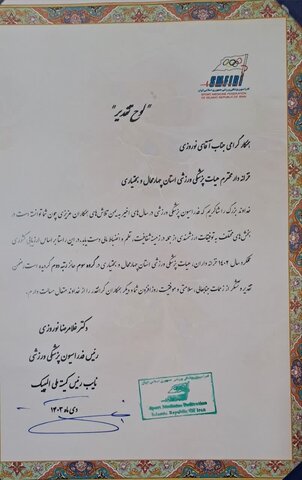 SMFIRI
فدراسیون پزشکی ورزشی جمهوری اسلامی ایران
SPORT MEDICINE FEDERATION
OF ISLAMIC REPUBLIC OF IRAN
"لوح تقدیر"
همکار گرامی جناب آقای نوروزی
خزانه دار محترم هیات پزشکی ورزشی استان چهارمحال و بختیاری
خداوند بزرگ را شاکریم که فدراسیون پزشکی ورزشی در سال های اخیر به یمن تلاش های همکاران عزیزی چون شما توانسته است در
بخش های مختلف به توفیقات ارزشمندی از جمله در زمینه شفافیت، نظم و انضباط مالی دست یابد، در این راستا بر اساس ارزیابی کشوری
عملکرد سال ۱۴۰۲ خزانه داران، هیات پزشکی ورزشی استان چهارمحال و بختیاری در گروه سوم حائز رتبه دوم گردیده است. ضمن
تقدیر و تشکر از زحمات جنابعالی، سلامتی و موفقیت روزافزون شما و دیگر همکاران گرانقدر را از خداوند متعال مسالت دارم.
دکتر غلامرضا نوروزی
رئیس فدراسیون پزشکی ورزشی
نایب رئیس کمیته ملی المپیک
دی ماه ۱۴۰۳
Sport Medicine Federation
Islamic Republic Of Iran